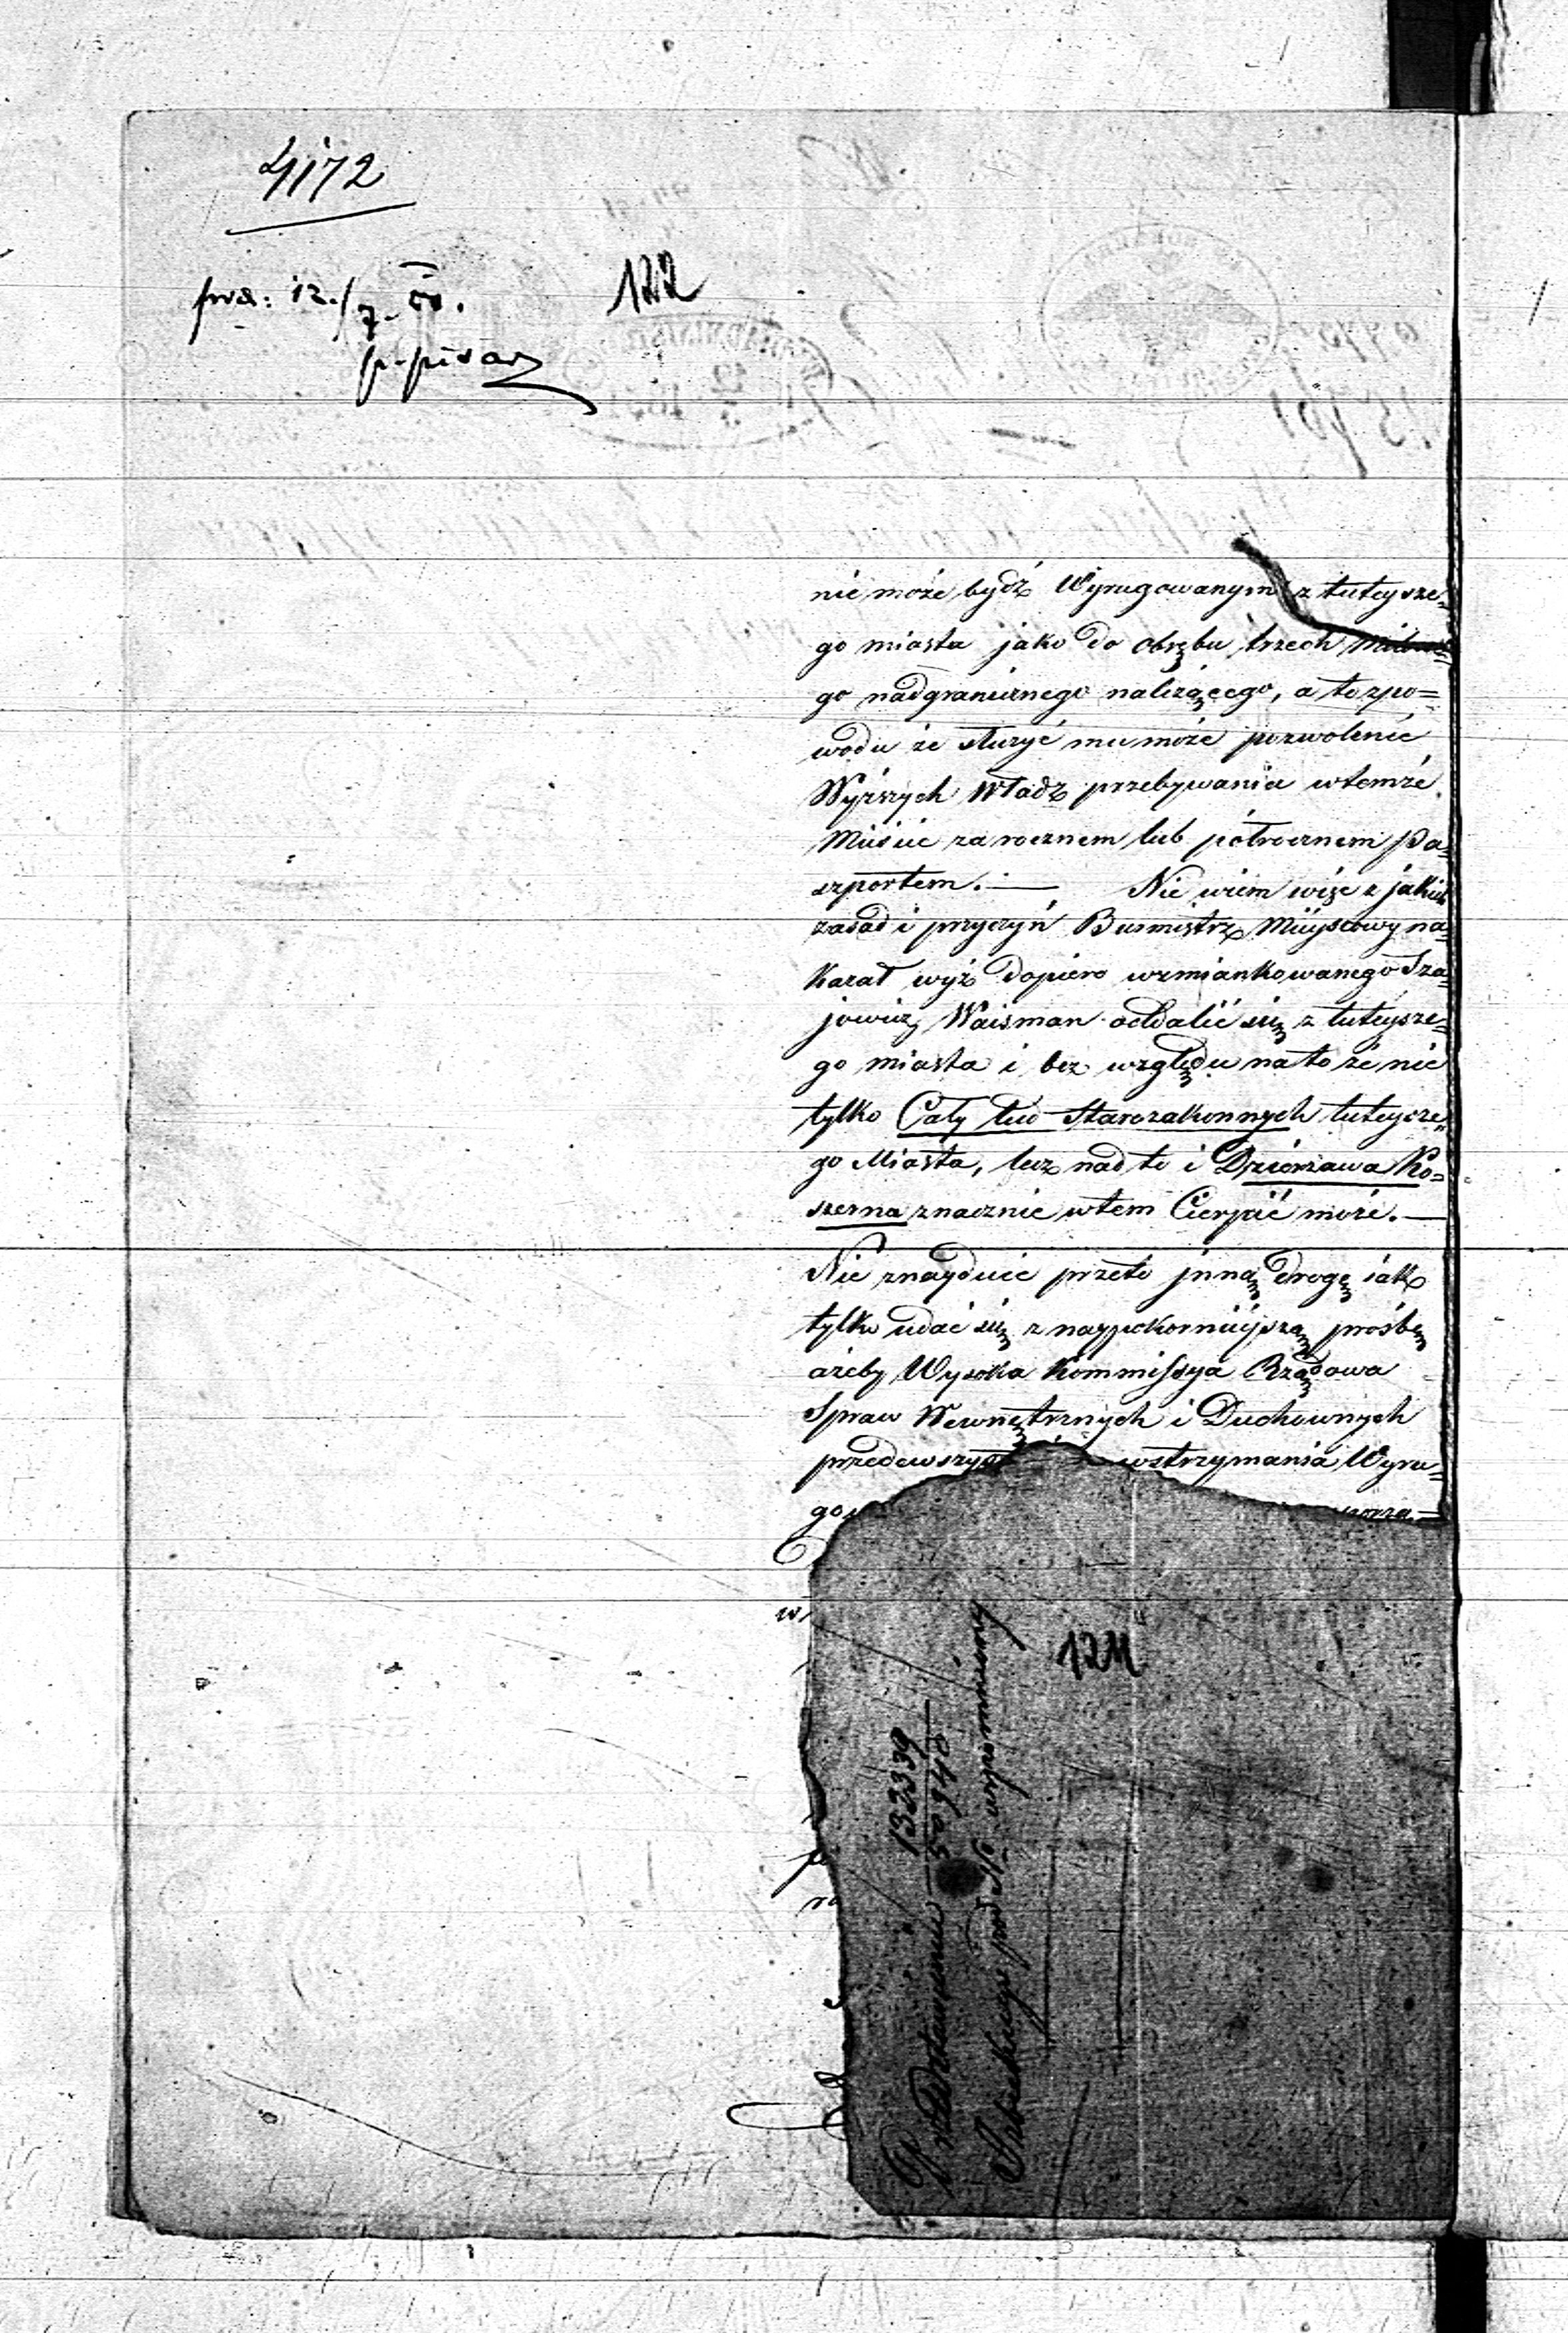 4172
122
nie może bydź Wyrugowanym z tuteysze=
go miasta jako do obrębu trzech milowe=
go nadgranicznego należącego, a to zpo=
wodu że służyć mu może pozwolenie
Wyższych Władz przebywania wtemże
Mieście za rocznem lub półrocznem Pa=
szportem. — Nie wiem więc z jakich
zasad i przyczyń Burmistrz Mieyscowy na=
kazał wyż dopiero wzmiankowanego Sza=
jowicz Waisman oddalić się z tuteysze=
go miasta i bez względu na to że nie
tylko Cały lud Starozakonnych tuteysze=
go Miasta, lecz nad to i Dzierzawa Ko=
szerna znacznie wtem Cierpić może. —
Nie znayduie przeto jnną drogę iak
tylko udać się z naypokornieyszą prośbą
ażeby Wysoka Kommissya Rządowa
Spraw Wewnętrznych i Duchownych
wstrzymania Wyru=
go
w
ra
124
13239
50948
pod No wypomniony